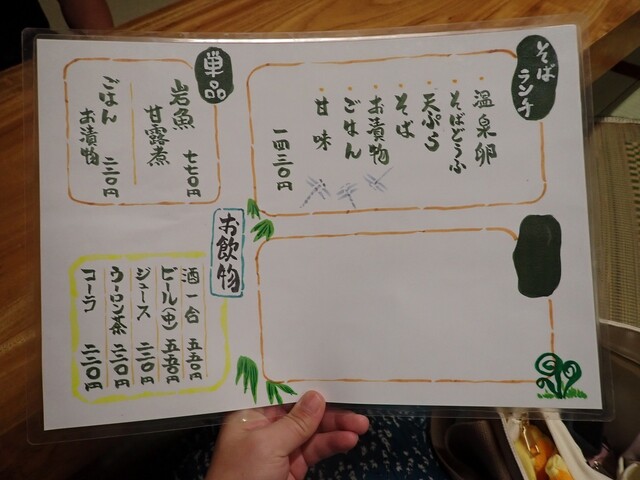 そば
ランチ
・温泉卵
・そばどうふ
・天ぷら
・そば
・お漬物
・ごはん
・甘味
一四三〇円
単品
岩魚
甘露煮
七七〇円
ごはん
お漬物
二二〇円
お飲物
酒一合 五五〇円
ビール(中) 五五〇円
ジュース 二二〇円
ウーロン茶 二二〇円
コーラ 二二〇円